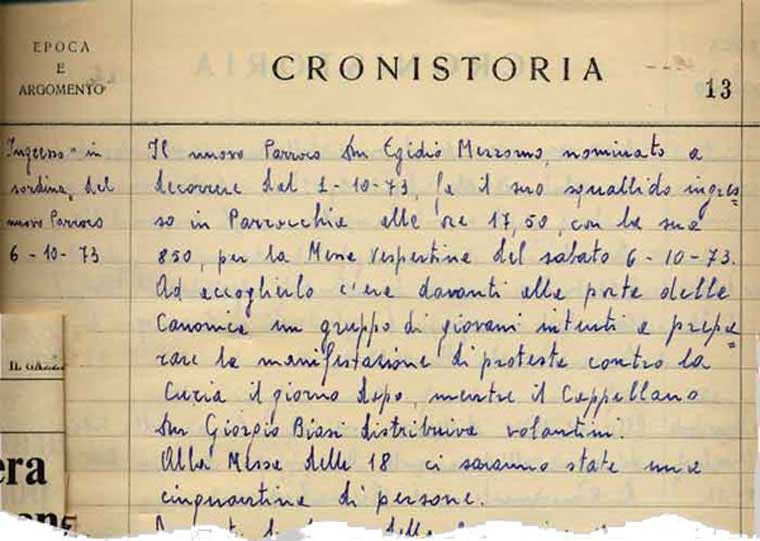 EPOCA
E
ARGOMENTO
CRONISTORIA
13
Ingresso "in
sordina" del
nuovo Parroco
6-10-73
Il nuovo Parroco Don Egidio Mezzomo, nominato a
decorrere dal 1-10-73, fa il suo squallido ingres=
so in Parrocchia alle ore 17,50, con la sua
850, per la Messa Vespertina del sabato 6-10-73.
Ad accoglierlo c'era davanti alla porta della
Canonica un gruppo di giovani intenti a prepa=
rare la manifestazione di protesta contro la
Curia il giorno dopo, mentre il Cappellano
Don Giorgio Biasi distribuiva volantini.
Alla Messa delle 18 ci saranno state una
cinquantina di persone.
IL GAZZ
era